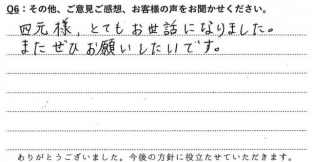 Q6：その他、ご意見ご感想、お客様の声をお聞かせください。
四元様，とてもお世話になりました。
またぜひお願いしたいです。
ありがとうございました。今後の方針に役立たせていただきます。